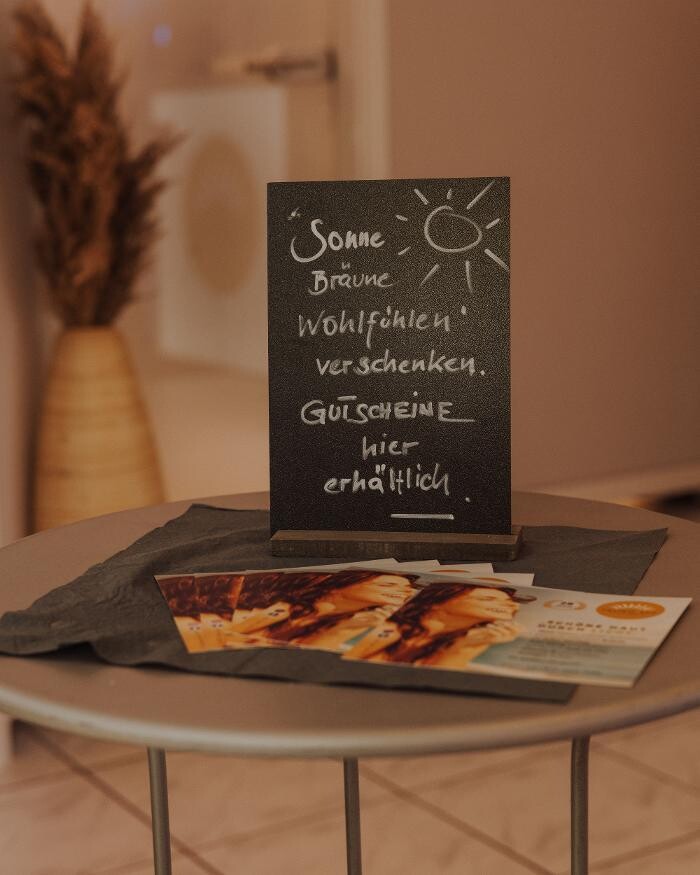 "Sonne
Bräune
Wohlfühlen"
verschenken.
GUTSCHEINE
hier
erhältlich.
SCHÖNE HAUT
DURCH